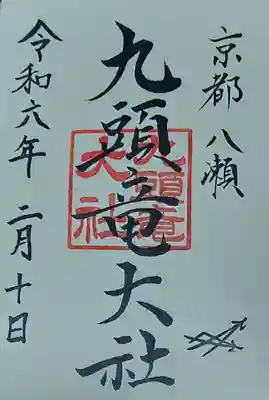 京都 八瀬
九頭竜大社
九頭竜大社
令和六年 二月十日